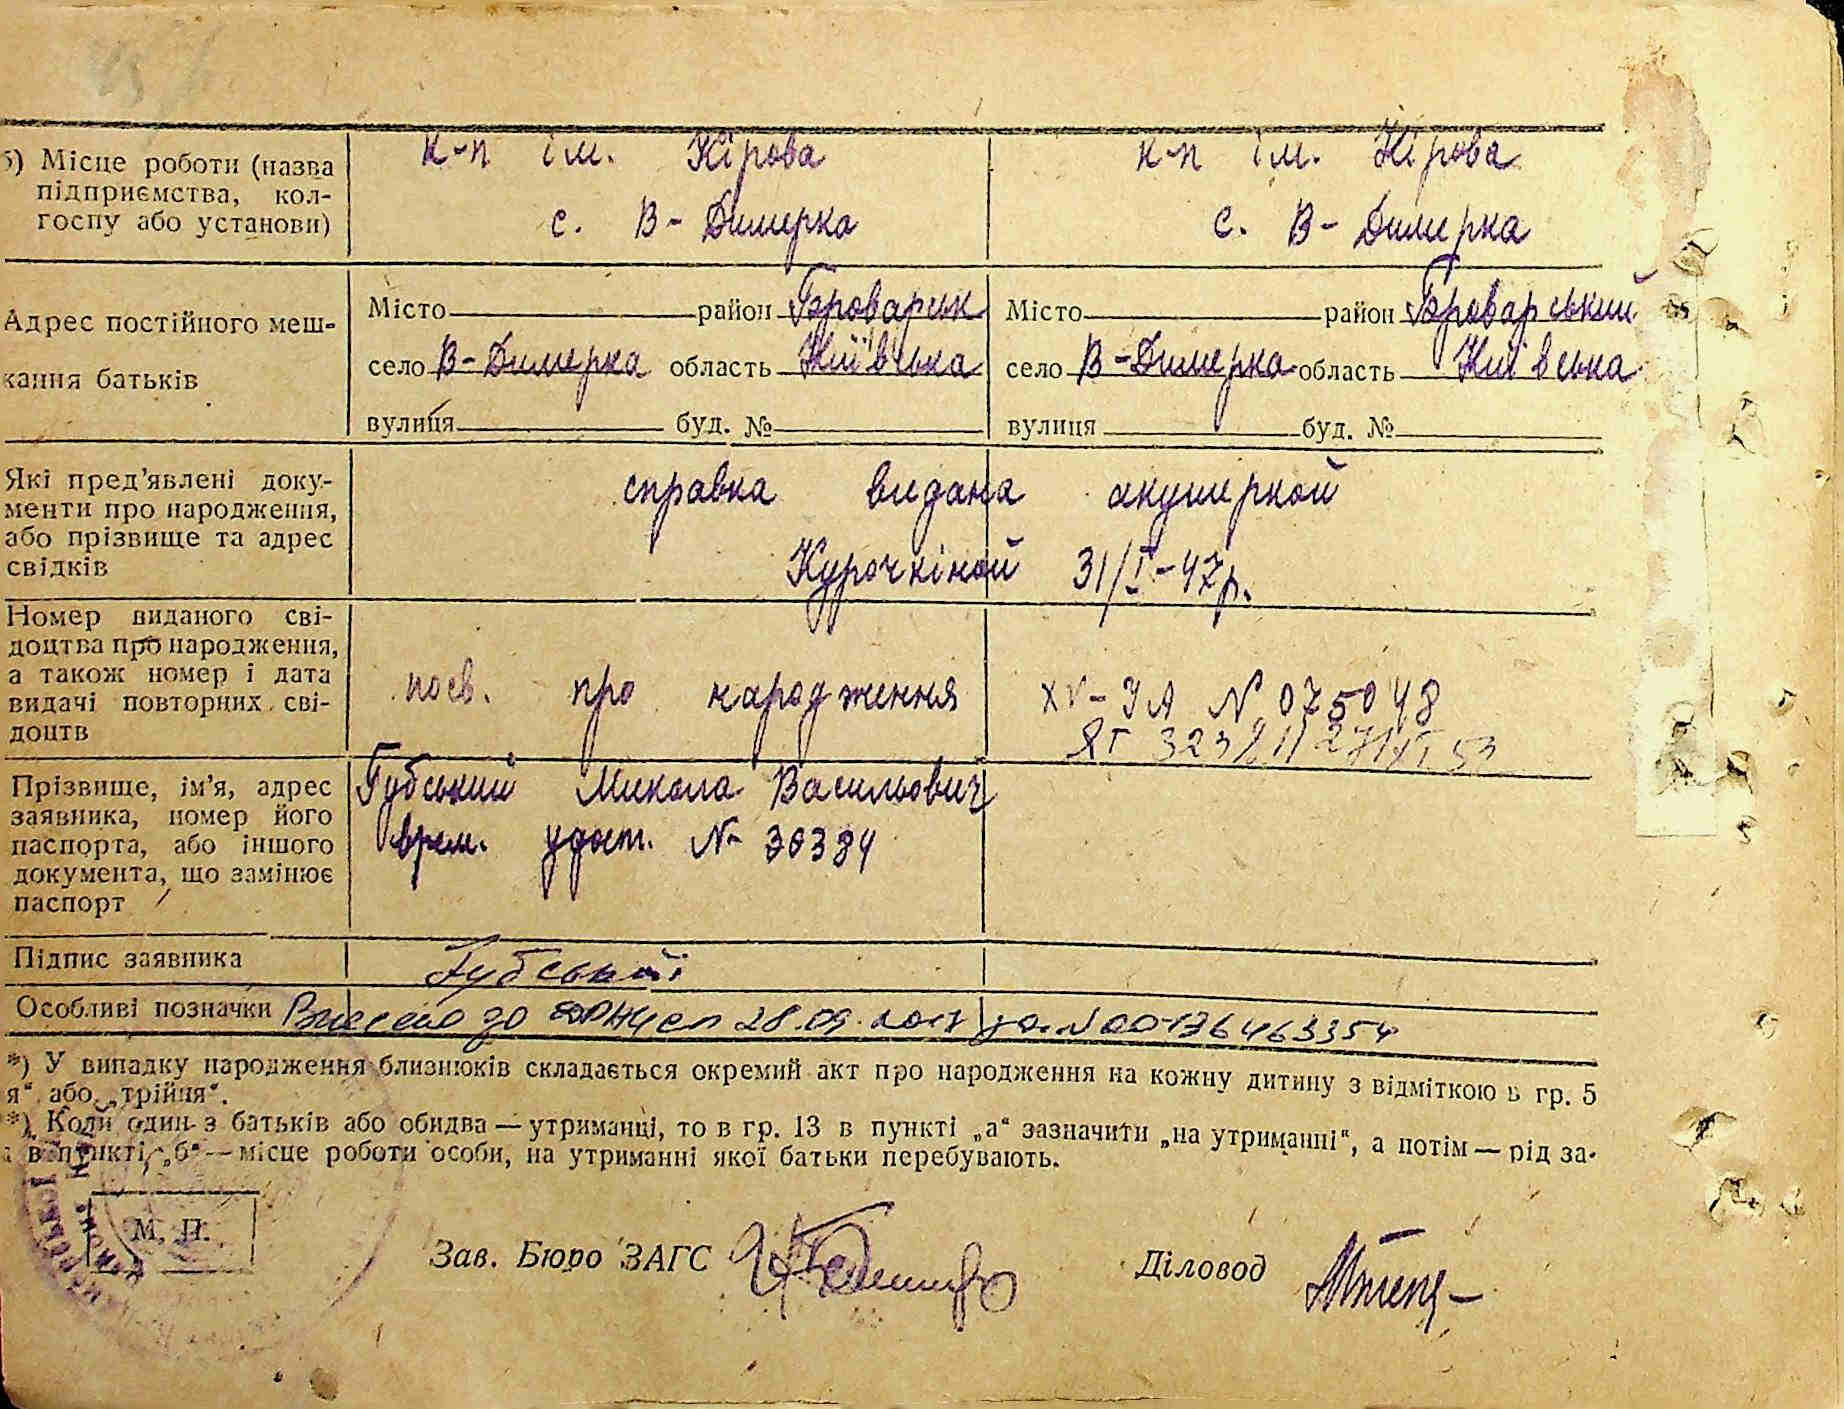 б) Місце роботи (назва підприємства, колгоспу або установи)
к-п ім. Кірова
с. В-Димерка
к-п ім. Кірова
с. В-Димерка
Адрес постійного меш-
кання батьків
Місто район Броварськ
село В-Димерка область Київська
вулиця буд. №
Місто район Броварський
село В-Димерка область Київська
вулиця буд. №
Які пред'явлені доку-
менти про народження,
або прізвище та адрес
свідків
справка видана акушеркой
Курочкіной 31/І-47р.
Номер виданого сві-
доцтва про народження,
а також номер і дата
видачі повторних сві-
доцтв
посв. про народження
XV-УА N 075048
ЯГ 323211 27/XI 53
Прізвище, ім'я, адрес
заявника, номер його
паспорта, або іншого
документа, що замінює
паспорт
Губський Микола Васильович
врем. удост. № 30384
Підпис заявника
Губський
Особливі позначки Внесено до 28.09.2017 за N 00136463354
*) У випадку народження близнюків складається окремий акт про народження на кожну дитину з відміткою в гр. 5
я" або „трійня".
*) Коли один з батьків або обидва — утриманці, то в гр. 13 в пункті „а" зазначити „на утриманні", а потім — рід за-
в пункті „б" — місце роботи особи, на утриманні якої батьки перебувають.
М. П.
Зав. Бюро ЗАГС
Діловод